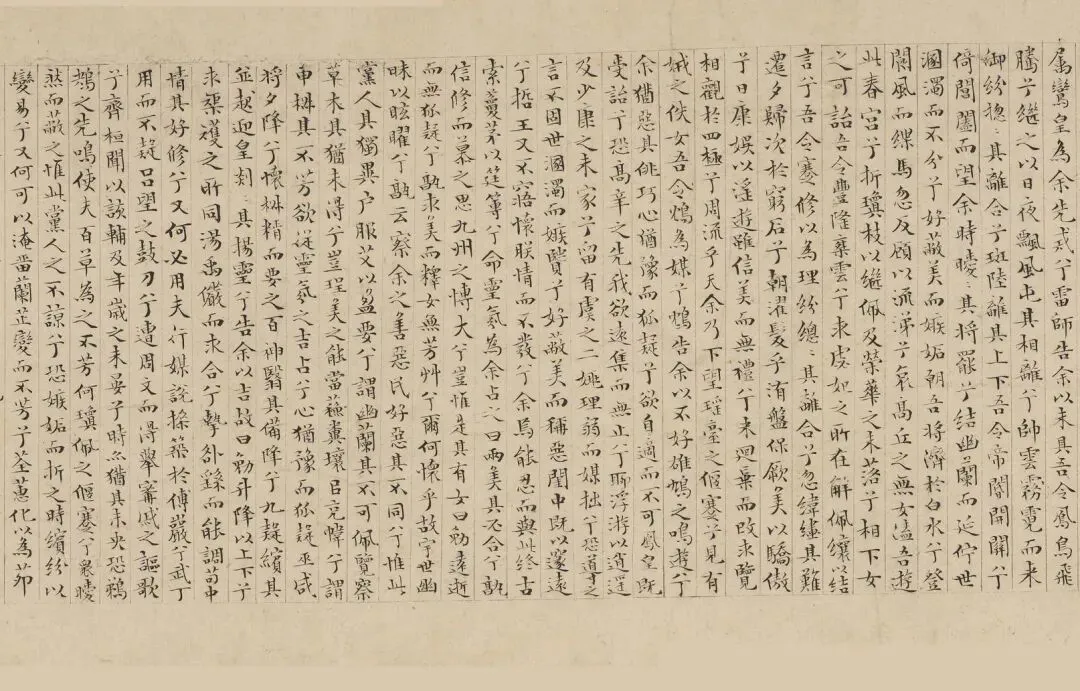 属鸞皇為余先戒兮雷師告余以未具吾令鳳鳥飛
騰兮繼之以日夜飄風屯其相離兮帥雲霧霓而来
御紛緫:其離合兮斑陸離其上下吾令帝閽開關兮
倚閶闔而望余時曖:其将罷兮結幽蘭而延佇世
溷濁而不分兮好蔽美而嫉妬朝吾将濟於白水兮登
閬風而緤馬忽反顧以流涕兮哀髙丘之無女溘吾遊
此春宫兮折瓊枝以継佩及榮華之未落兮相下女
之可詒吾令豐隆椉雲兮求虙妃之所在解佩纕以結
言兮吾令蹇修以為理紛總:其離合兮忽緯繣其難
遷夕歸次於窮石兮朝濯髮乎洧盤保厥美以驕傲
兮日康娱以淫遊雖信美而無禮兮来迴棄而改求覽
相觀於四極兮周流乎天余乃下望瑶臺之偃蹇兮見有
娀之佚女吾令鴆為媒兮鴆告余以不好雄鳩之鳴逝兮
余猶惡其佻巧心猶豫而狐疑兮欲自適而不可鳳皇既
受詒兮恐髙辛之先我欲逺集而無止兮聊浮遊以逍遥
及少康之未家兮留有虞之二姚理弱而媒拙兮恐道之
言不固世溷濁而嫉賢兮好蔽美而稱惡閨中既以邃逺
兮哲王又不寤懷朕情而不發兮余焉能忍而與此終古
索藑茅以筳篿兮命靈氛為余占之曰兩美其必合兮孰
信修而慕之思九州之博大兮豈惟是其有女曰勉逺逝
而無狐疑兮孰求美而釋女無芳艸兮爾何懷乎故宇世幽
昧以眩曜兮孰云察余之善惡民好惡其不同兮惟此
黨人其獨異户服艾以盈要兮謂幽蘭其不可佩覽察
草木其猶未得兮豈珵美之能當蘇糞壤以充幃兮謂
申椒其不芳欲從靈氛之吉占兮心猶豫而狐疑巫咸
将夕降兮懷椒糈而要之百神翳其備降兮九疑繽其
並迎皇剡:其揚靈兮告余以吉故曰勉升降以上下兮
求榘矱之所同湯禹儼而求合兮摯咎繇而能調苟中
情其好修兮又何必用夫行媒説操築於傅巖兮武丁
用而不疑吕望之鼓刀兮遭周文而得舉甯戚之謳歌
兮齊桓聞以該輔及年歲之未晏兮時亦猶其未央恐鵜
鴂之先鳴使夫百草為之不芳何瓊佩之偃蹇兮衆曖
然而蔽之惟此黨人之不諒兮恐嫉妬而折之時繽紛以
變易兮又何可以淹留蘭芷變而不芳兮荃蕙化以為茆